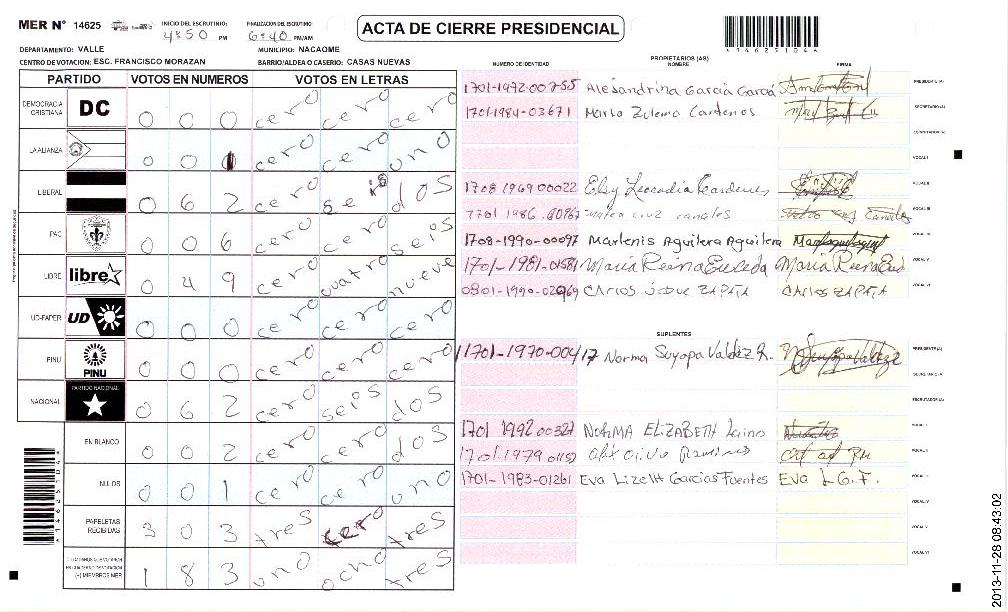 MER N° 14625
INICIO DEL ESCRUTINIO: 4:50 PM
FINALIZACION DEL ESCRUTINIO: 6:40 PM/AM
ACTA DE CIERRE PRESIDENCIAL
DEPARTAMENTO: VALLE
MUNICIPIO: NACAOME
CENTRO DE VOTACION: ESC. FRANCISCO MORAZAN
BARRIO/ALDEA O CASERIO: CASAS NUEVAS
PARTIDO VOTOS EN NUMEROS VOTOS EN LETRAS
DEMOCRACIA CRISTIANA DC 0 0 0 cero cero cero
LA ALIANZA 0 0 1 cero cero uno
LIBERAL 0 6 2 cero seis dos
PAC 0 0 6 cero cero seis
LIBRE libre 0 4 9 cero cuatro nueve
UD-FAPER UD 0 0 0 cero cero cero
PINU PINU 0 0 0 cero cero cero
NACIONAL PARTIDO NACIONAL 0 6 2 cero seis dos
EN BLANCO 0 0 2 cero cero dos
NULOS 0 0 1 cero cero uno
PAPELETAS RECIBIDAS 3 0 3 tres cero tres
(+) MIEMBROS MER 1 8 3 uno ocho tres
PROPIETARIOS (AS)
NUMERO DE IDENTIDAD NOMBRE FIRMA
1701-1972-00755 Alesandrina García García PRESIDENTE (A)
1701-1984-03671 Marlo Zulema Cardenos SECRETARIO (A)
ESCRUTADOR (A)
VOCAL I
1708 1969 00022 Elsy Leocadia Cardenes VOCAL II
VOCAL III
1708-1990-00097 Marlenis Aguilera Aguilera
1701-1981-01581 María Reina Euceda VOCAL V
0801-1990-02969 CARLOS ZAPATA CARLOS ZAPATA VOCAL VI
SUPLENTES
1701-1970-00417 Norma Suyapa Valdez R. PRESIDENTE (A)
SECRETARIO/A
ESCRUTADOR (A)
1701 1992 00327 NORMA ELIZABETH VOCAL I
1701 1979 01152 VOCAL II
1701-1983-01261 Eva Lizeth Garcias Fuentes Eva L G.F.
VOCAL IV
VOCAL V
VOCAL VI
*14625104*
2013-11-28 08:43:02